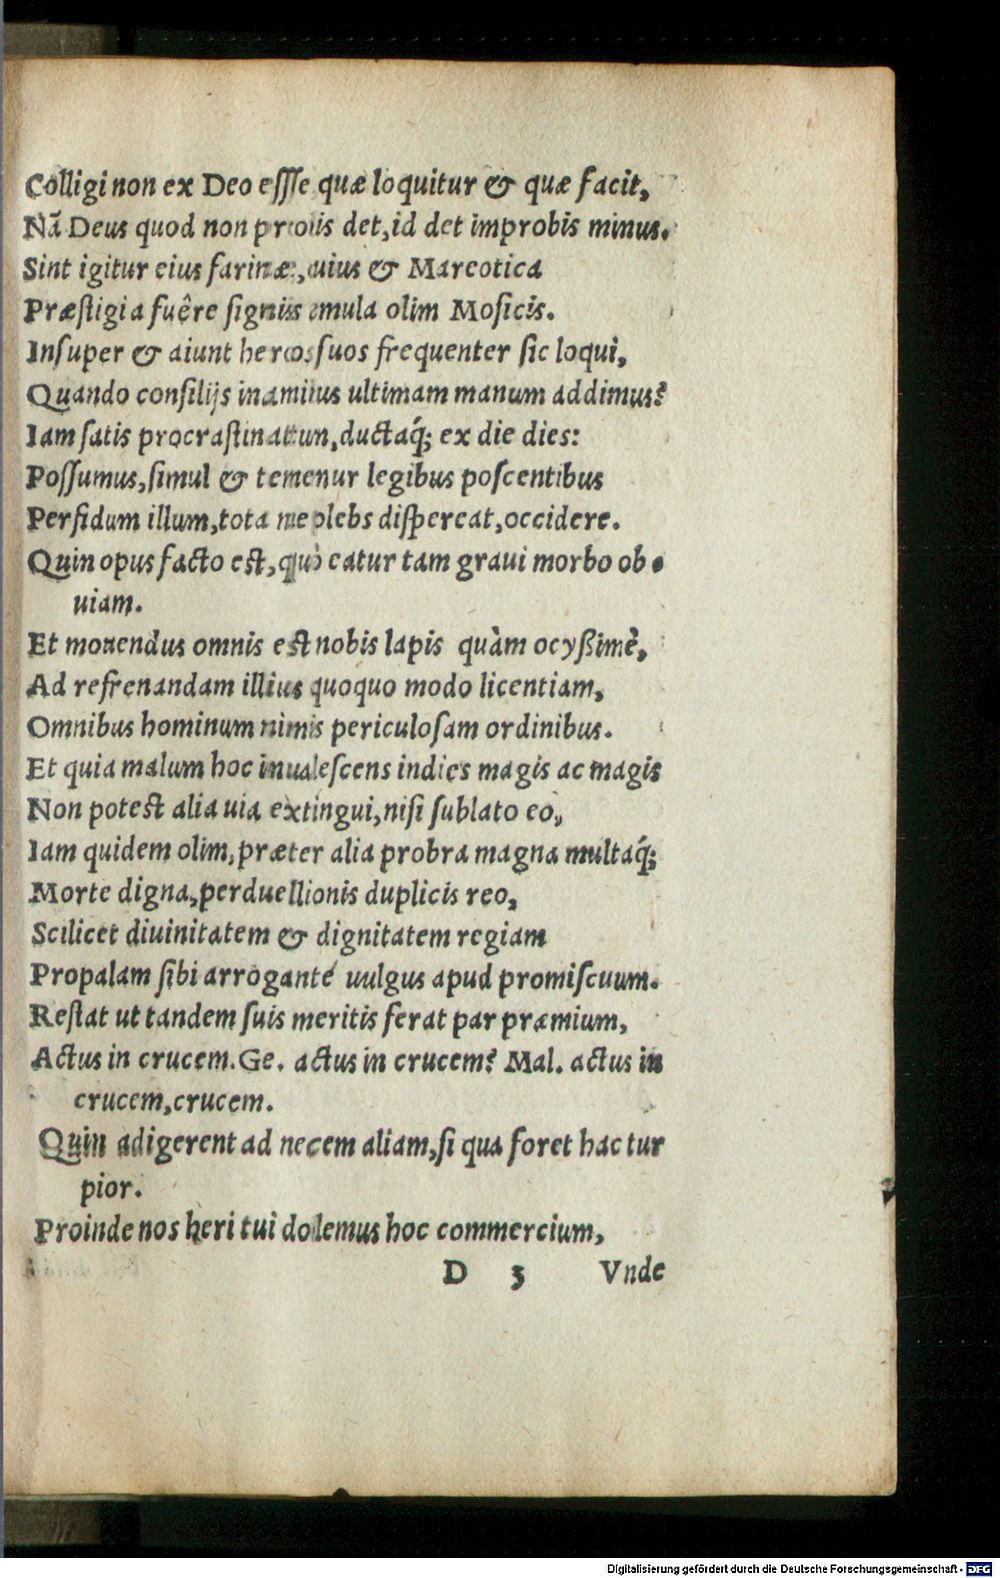 Colligi non ex Deo eſſe quæ loquitur & quæ facit,
Nã Deus quod non probis det, id det improbis minus.
Sint igitur eius farinæ, cuius & Mareotica
Præſtigia fuêre ſignis æmula olim Moſicis.
Inſuper & aiunt heros ſuos frequenter ſic loqui,
Quando conſilijs inamius ultimam manum addimus?
Iam ſatis procraſtinatum, ductaq́; ex die dies:
Poſſumus, ſimul & tenemur legibus poſcentibus
Perfidum illum, tota ne plebs diſpereat, occidere.
Quin opus facto eſt, quò eatur tam graui morbo ob
uiam.
Et mouendus omnis eſt nobis lapis quàm ocyßimè,
Ad refrenandam illius quoquo modo licentiam,
Omnibus hominum nimis periculoſam ordinibus.
Et quia malum hoc inualeſcens indies magis ac magis
Non poteſt alia uia extingui, niſi ſublato eo,
Iam quidem olim, præter alia probra magna multaq́;
Morte digna, perduellionis duplicis reo,
Scilicet diuinitatem & dignitatem regiam
Propalam ſibi arrogante uulgus apud promiſcuum.
Reſtat ut tandem ſuis meritis ferat par præmium,
Actus in crucem. Ge. actus in crucem? Mal. actus in
crucem, crucem.
Quin adigerent ad necem aliam, ſi qua foret hac tur
pior.
Proinde nos heri tui dolemus hoc commercium,
D 3 Vnde
Digitalisierung gefördert durch die Deutsche Forschungsgemeinschaft - DFG